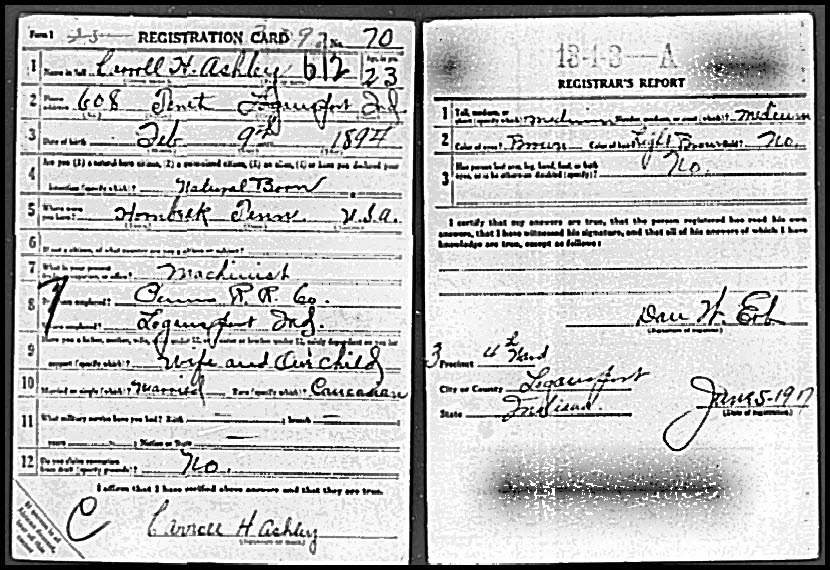 Form 1 REGISTRATION CARD No. 70
1 Name in full Carroll H. Ashley 23
Age, in yrs.
2 Home address 608 Logansport Ind
3 Date of birth Feb 9th 1894
4 Are you (1) a natural born citizen, (2) a naturalized citizen, (3) an alien, (4) or have you declared your
intention (specify which)? Natural Born
5 Where were you born? Hornbeak Tenn U.S.A.
6 If not a citizen, of what country are you a citizen or subject?
7 What is your present trade, occupation, or office? Machinist
8 By whom employed? Penn R. R. Co.
Where employed? Logansport Ind.
9 Have you a father, mother, wife, child under 12, or a sister or brother under 12, solely dependent on you for
support (specify which)? Wife and One child
10 Married or single (which)? Married Race (specify which)? Caucasian
11 What military service have you had? Rank — ; branch —
years — ; Nation or State —
12 Do you claim exemption from draft (specify grounds)? No.
I affirm that I have verified above answers and that they are true.
C Carroll H Ashley
(Signature or mark)
13-1-3—A
REGISTRAR'S REPORT
1 Tall, medium, or short (specify which)? medium Slender, medium, or stout (which)? medium
2 Color of eyes? Brown Color of hair? Light Brown Bald? No.
3 Has person lost arm, leg, hand, foot, or both eyes, or is he otherwise disabled (specify)? No.
I certify that my answers are true, that the person registered has read his own
answers, that I have witnessed his signature, and that all of his answers of which I have
knowledge are true, except as follows:
Dan W. Erb
(Signature of registrar)
Precinct 3 4th Ward
City or County Logansport
State Indiana
June 5-1917
(Date of registration)